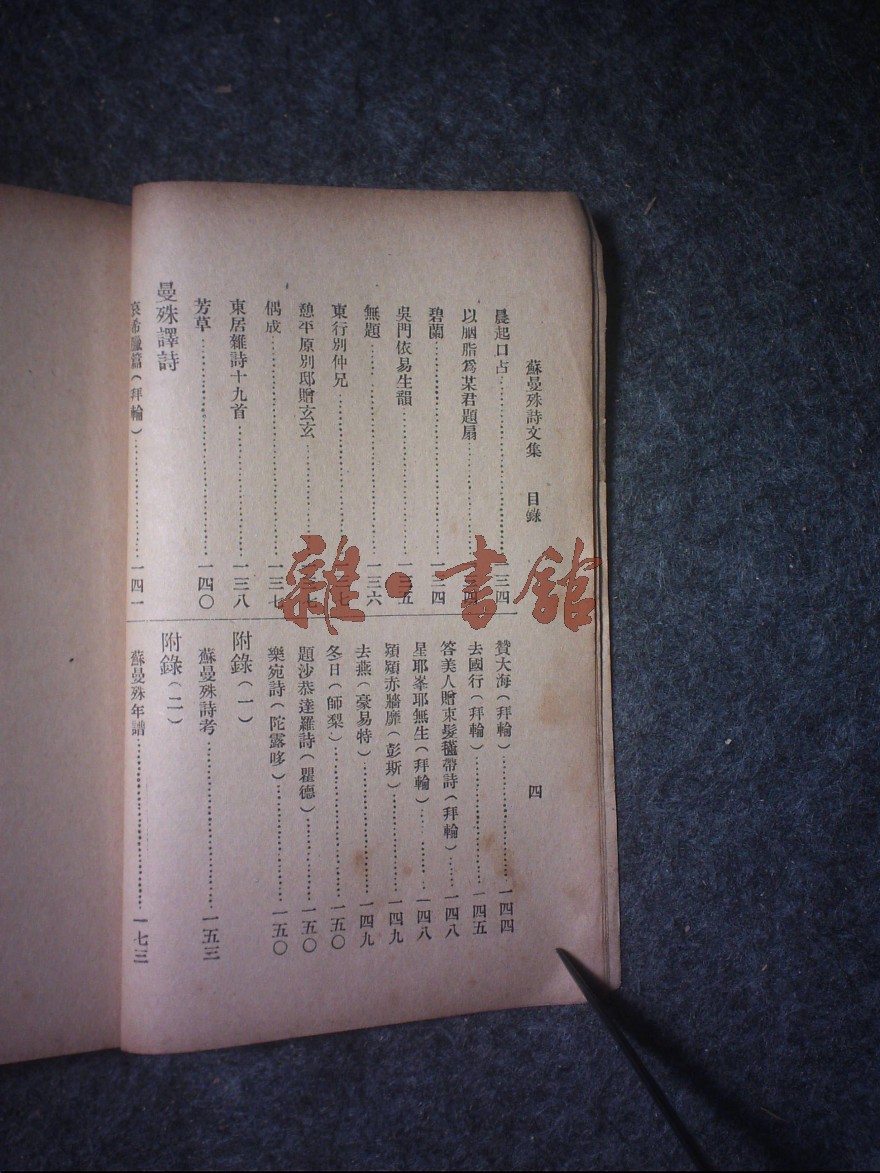 蘇曼殊詩文集 目錄
四
晨起口占……一三四
以胭脂爲某君題扇……
碧蘭……一三四
吳門依易生韻……一三五
無題……一三六
東行別仲兄……
憩平原別邸贈玄玄……
偶成……一三七
東居雜詩十九首……一三八
芳草……一四〇
曼殊譯詩
哀希臘篇(拜輪)……一四一
贊大海(拜輪)……一四四
去國行(拜輪)……一四五
答美人贈束髮𣰽帶詩(拜輪)……一四八
星耶峯耶無生(拜輪)……一四八
熲熲赤牆靡(彭斯)……一四九
去燕(豪易特)……一四九
冬日(師梨)……一五〇
題沙恭達羅詩(瞿德)……一五〇
樂宛詩(陀露哆)……一五〇
附錄(一)
蘇曼殊詩考……一五三
附錄(二)
蘇曼殊年譜……一七三
雜·書館